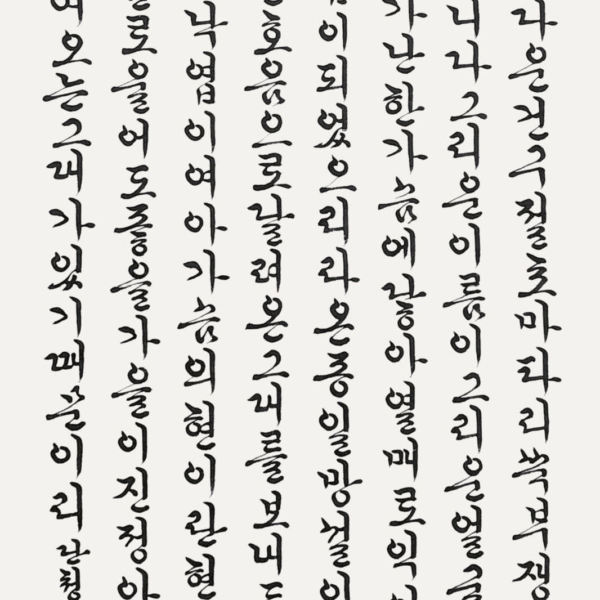 운산구절초마타리쑥부쟁
니나그리운이름이그리운얼
가난한가슴에남아열매로익
이되었으리라온종일망설이
호음으로날려온그대를보내
낙엽이여아가슴의현이란현
로울어도좋을가을이진정아
오는그대가있기때문이리